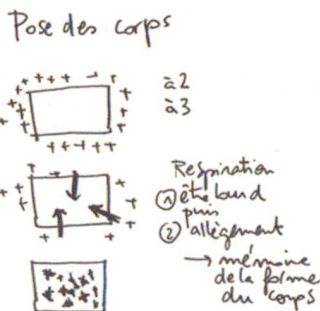 Pose des corps
à 2
à 3
Respiration
① être lourd
puis
② l'allègement
→ mémoire
de la forme
du corps